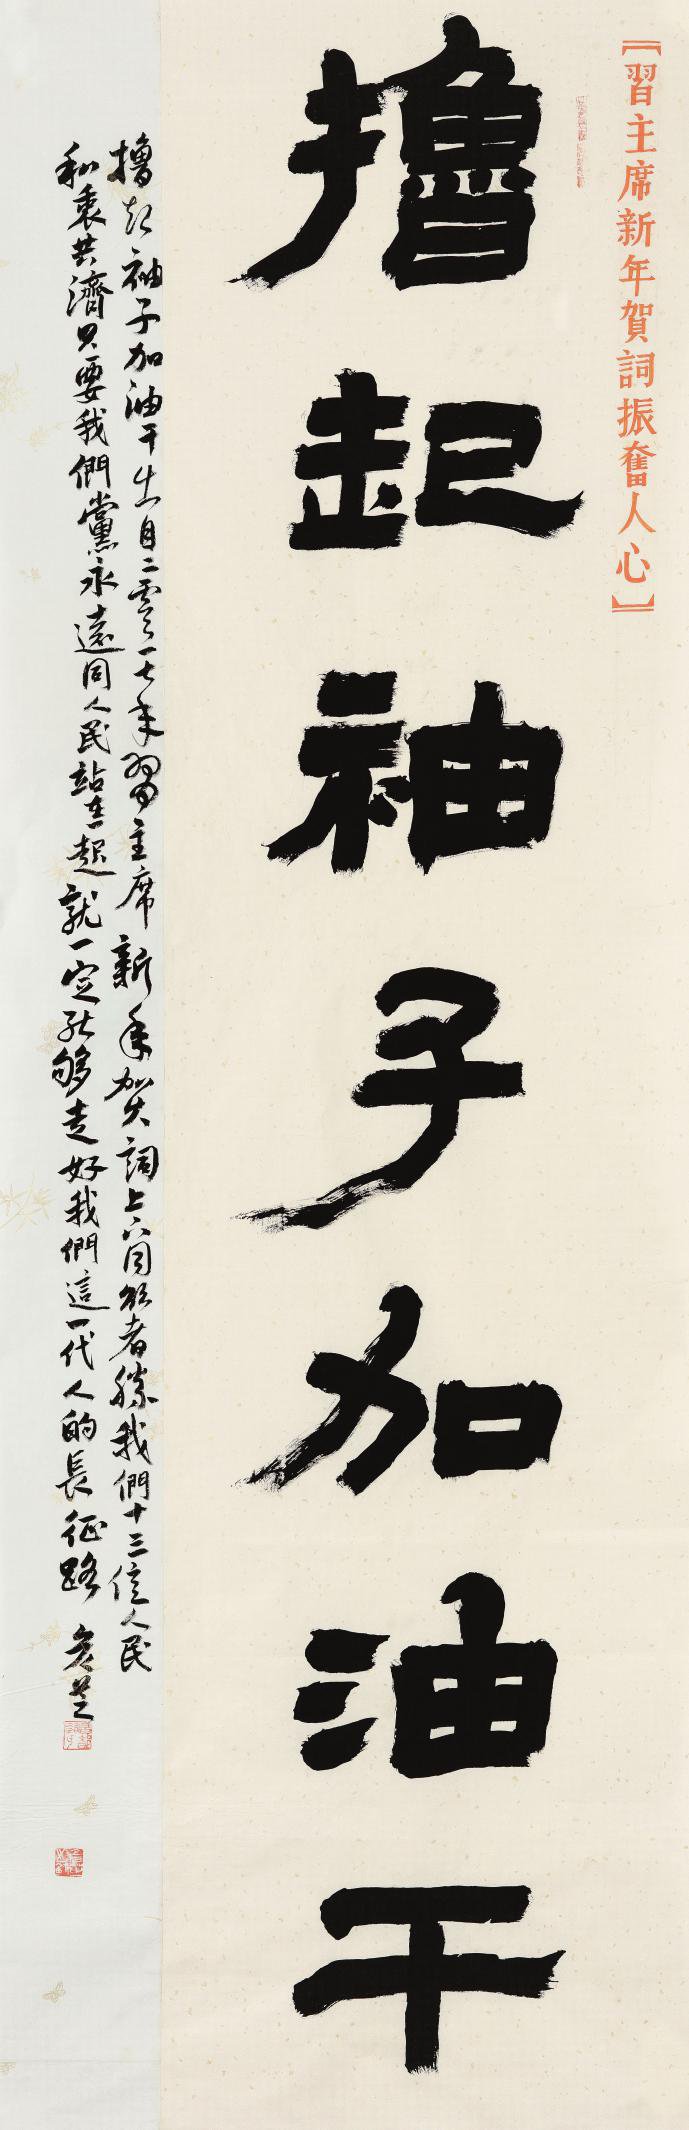 【習主席新年賀詞振奮人心】
擼起袖子加油干
擼起袖子加油干出自二零一七年習主席新年賀詞上下同欲者勝我們十三億人民
和衷共濟只要我們黨永遠同人民站在一起就一定能够走好我們這一代人的長征路